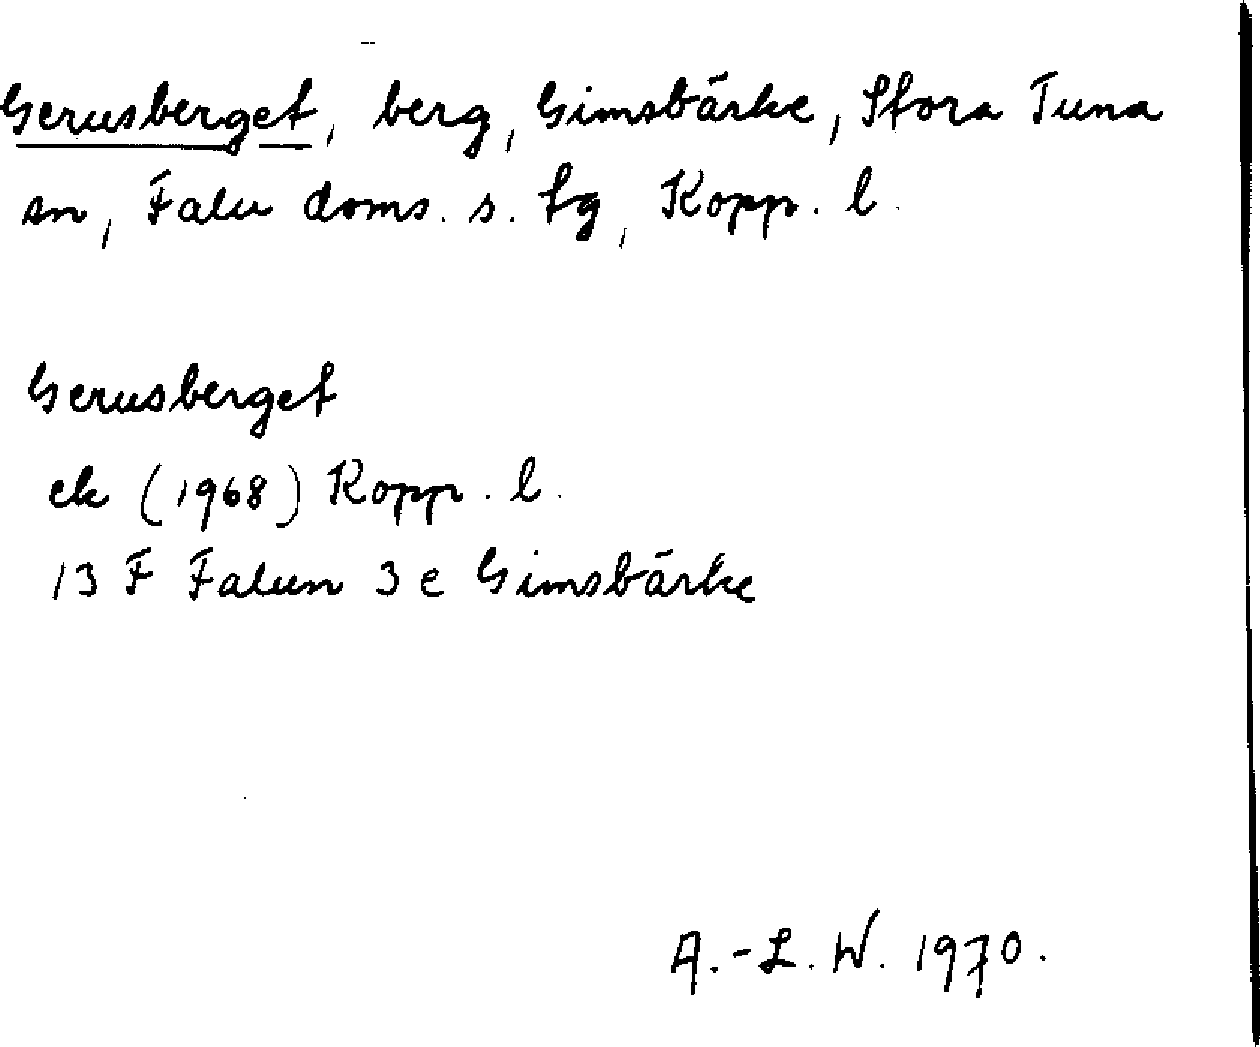 Gerusberget, berg, Gimsbärke, Stora Tuna
sn, Falu doms. s. tg, Kopp. l.
Gerusberget
ek (1968) Kopp. l.
13 F Falun 3 e Gimsbärke
A.-L. W. 1970.